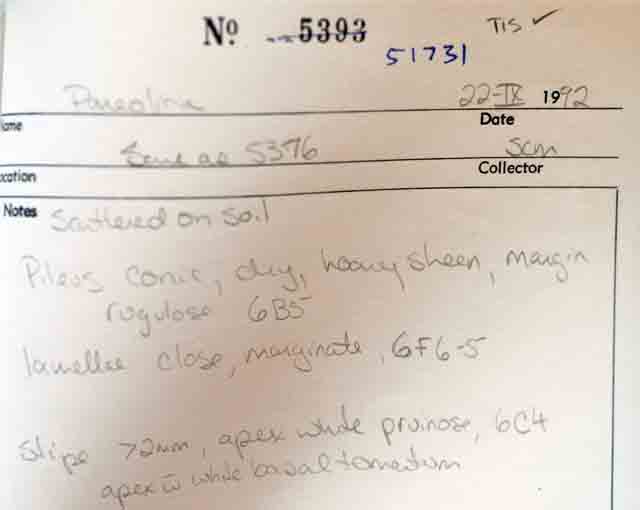 Nº 5393
TIS ✓
51731
Panaeolina
22-IX 1992
ame
Date
Same as 5376
scm
ocation
Collector
Notes Scattered on soil
Pileus conic, dry, hoary sheen, margin
rugulose 6B5
lamellae close, marginate, 6F6-5
Stipe >2mm, apex white pruinose, 6C4
apex c̄ white basal tomentum